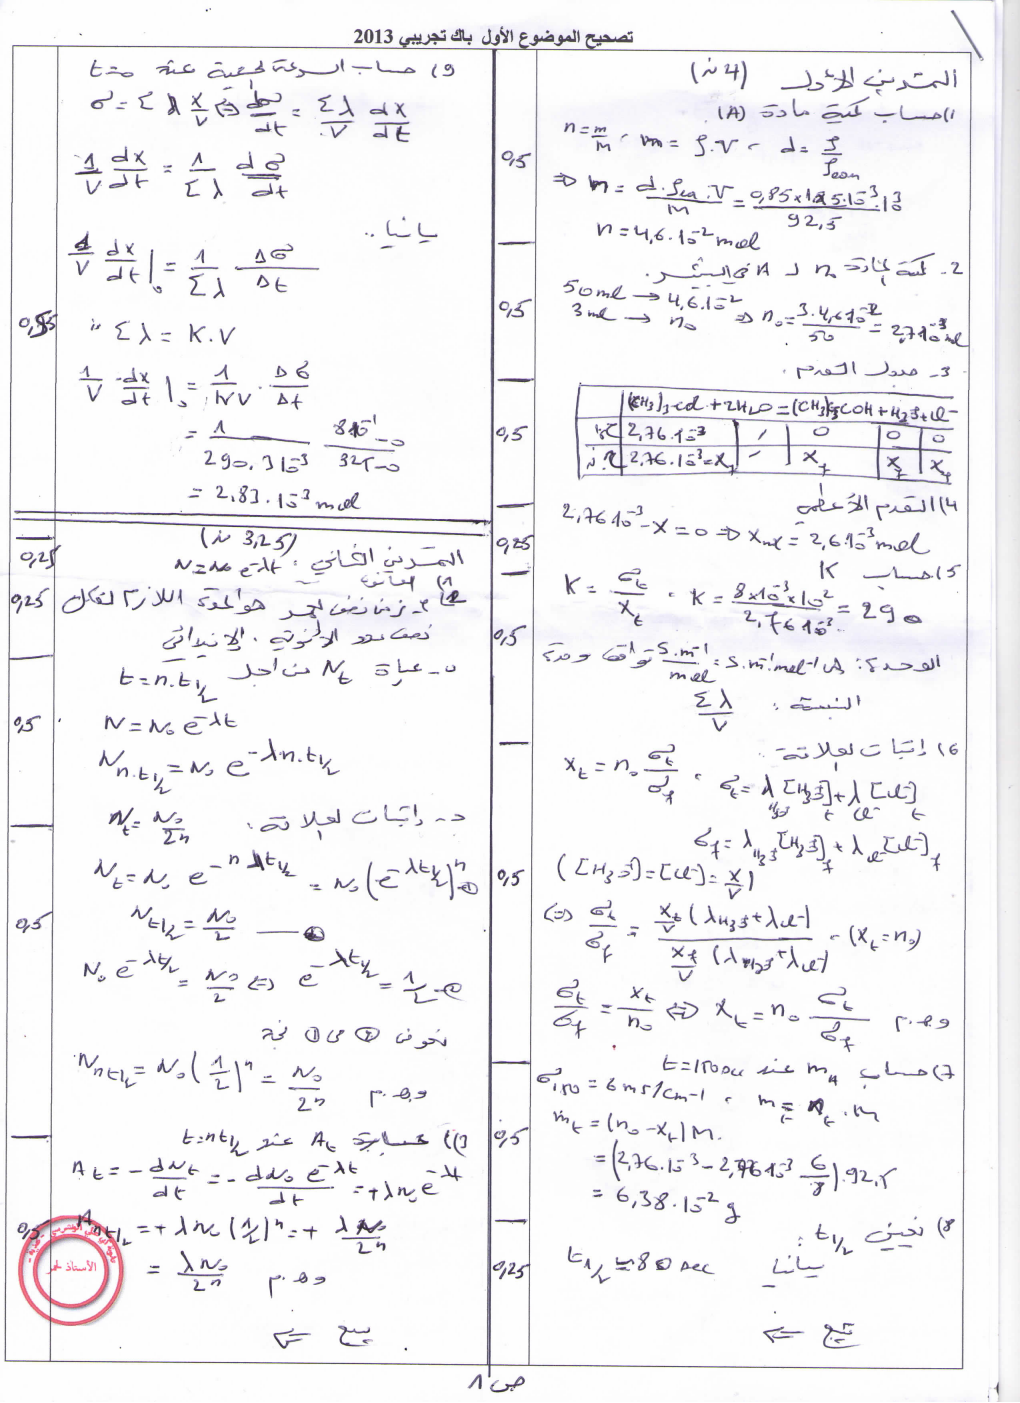 تصحيح الموضوع الأول باك تجريبي 2013
التمرين الأول (4 ن)
1) حساب كمية مادة (A)
n = m/M ، m = ρ.V ، d = ρ/ρeau
0,5
n = 4,6.10⁻² mol
2- كمية المادة n₀ لـ A في البيشر.
50ml → 4,6.10⁻²
3ml → n₀ ⇒ n₀ = 3.4,6.10⁻²/50 =
0,5
3- جدول التقدم.
0,5
2,76.10⁻³ | / | 0 | 0 | 0
2,76.10⁻³-x_f | / | x_f | x_f | x_f
4) التقدم الأعظمي
2,76.10⁻³ - x = 0 ⇒ x_max = 2,6.10⁻³ mol
0,25
5) حساب K
K = σt/xt ، K = 8×10⁻³×10²/2,76.10⁻³ = 290
0,5
الوحدة: S.m⁻¹/mol = S.m⁻¹.mol⁻¹
النسبة: Σλ/V
6) إثبات العلاقة:
xt = n₀ σt/σf ، σt = λH₃O⁺[H₃O⁺]t + λCl⁻[Cl⁻]t
σf = λH₃O⁺[H₃O⁺]f + λCl⁻[Cl⁻]f
([H₃O⁺] = [Cl⁻] = x/V)
0,5
⇔ σt/σf = xt/V (λH₃O⁺+λCl⁻) / xf/V (λH₃O⁺+λCl⁻)
σt/σf = xt/n₀ ⇔ xt = n₀ σt/σf و.هـ.م
7) حساب mA عند t=150 sec
mt = (n₀ - xt)M.
0,5
= (2,76.10⁻³ - 2,76.10⁻³ 6/8).92,5
= 6,38.10⁻² g
8) تعيين t1/2:
بيانيا t1/2 ≈ 80 sec
0,25
يتبع ⇐
9) حساب السرعة الحجمية عند t=0
σ = Σλ x/V ⇔ dσ/dt = Σλ/V dx/dt
1/V dx/dt = 1/Σλ dσ/dt
بيانيا..
1/V dx/dt|₀ = 1/Σλ Δσ/Δt
Σλ = K.V
1/V dx/dt|₀ = 1/KV . Δσ/Δt
= 2,83.10⁻³ mol
التمرين الثاني: (3,25 ن)
0,25
N = N₀ e^-λt
0,25
زمن نصف العمر هو المدة اللازمة لتفكك
نصف عدد الأنوية الإبتدائي
عبارة Nt من أجل t = n.t1/2
0,5
N = N₀ e^-λt
N n.t1/2 = N₀ e^-λn.t1/2
إثبات العلاقة: Nt = N₀/2ⁿ
Nt = N₀ e^-nλt1/2 = N₀ (e^-λt1/2)ⁿ
0,5
Nt1/2 = N₀/2
N₀ e^-λt1/2 = N₀/2 ⇔ e^-λt1/2 = 1/2
نعوض 2 في 1 نجد
N nt1/2 = N₀ (1/2)ⁿ = N₀/2ⁿ و.هـ.م
3) عبارة At عند t=nt1/2
At = -dNt/dt = -dN₀ e^-λt/dt = +λN₀e^-λt
0,5
A nt1/2 = +λN₀(1/2)ⁿ = + λN₀/2ⁿ
= λN₀/2ⁿ و.هـ.م
الأستاذ
يتبع ⇐
ص 1